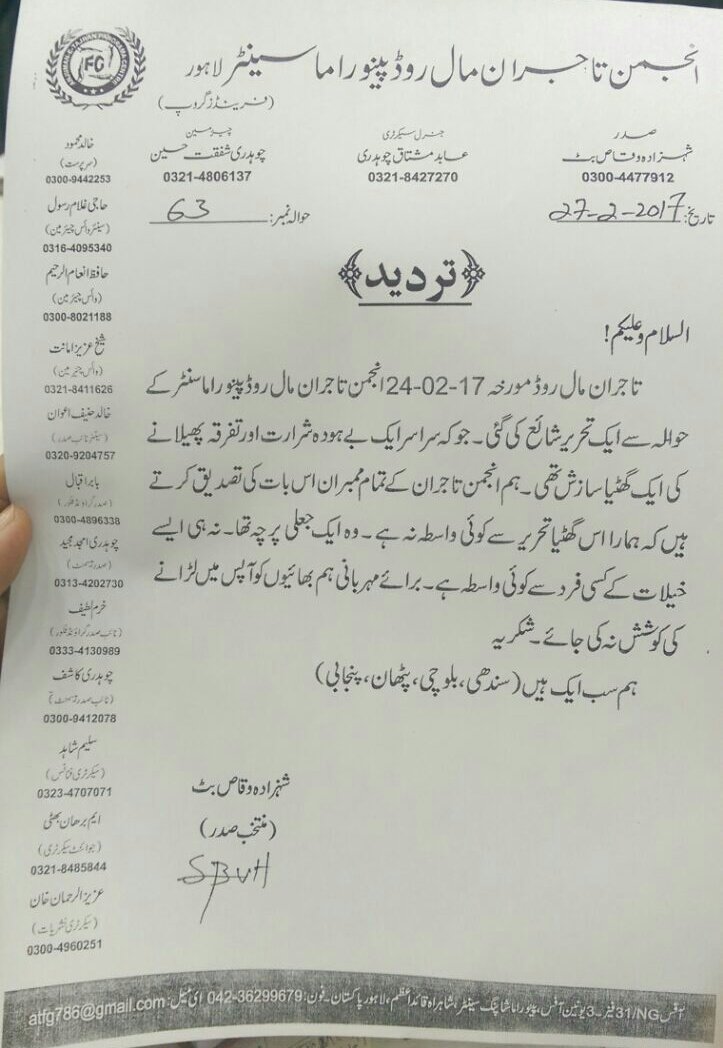 انجمن تاجران مال روڈ پینوراما سینٹر لاہور
(فرینڈز گروپ)
FG
صدر
شہزادہ وقاص بٹ
0300-4477912
جنرل سیکرٹری
عابد مشتاق چوہدری
0321-8427270
چیئرمین
چوہدری شفقت حسین
0321-4806137
تاریخ: 27-2-2017
حوالہ نمبر: 63
خالد محمود
(سرپرست)
0300-9442253
حاجی غلام رسول
(سینئر وائس چیئرمین)
0316-4095340
حافظ انعام الرحیم
(وائس چیئرمین)
0300-8021188
شیخ عزیز امانت
(وائس چیئرمین)
0321-8411626
خالد حنیف اعوان
(سینئر نائب صدر)
0320-9204757
بابر اقبال
(صدر گراؤنڈ فلور)
0300-4896338
چوہدری امجد مجید
(صدر بیسمنٹ)
0313-4202730
خرم لطیف
(نائب صدر گراؤنڈ فلور)
0333-4130989
چوہدری کاشف
(نائب صدر بیسمنٹ)
0300-9412078
سلیم شاہد
(سیکرٹری فنانس)
0323-4707071
ایم برھان بھٹی
(جوائنٹ سیکرٹری)
0321-8485844
عزیز الرحمان خان
(سیکرٹری نشریات)
0300-4960251
﴿تردید﴾
السلام وعلیکم!
تاجران مال روڈ مورخہ 17-02-24 انجمن تاجران مال روڈ پینوراما سنٹر کے
حوالہ سے ایک تحریر شائع کی گئی۔ جو کہ سراسر ایک بے ہودہ شرارت اور تفرقہ پھیلانے
کی ایک گھٹیا سازش تھی۔ ہم انجمن تاجران کے تمام ممبران اس بات کی تصدیق کرتے
ہیں کہ ہمارا اس گھٹیا تحریر سے کوئی واسطہ نہ ہے۔ وہ ایک جعلی پرچہ تھا۔ نہ ہی ایسے
خیلات کے کسی فرد سے کوئی واسطہ ہے۔ برائے مہربانی ہم بھائیوں کو آپس میں لڑانے
کی کوشش نہ کی جائے۔ شکریہ
ہم سب ایک ہیں (سندھی، بلوچی، پٹھان، پنجابی)
شہزادہ وقاص بٹ
(منتخب صدر)
آفس 31/NG فیز۔3 یونین آفس، پینوراما شاپنگ سینٹر، شاہراہ قائداعظم، لاہور پاکستان۔ فون: 042-36299679 ای میل: atfg786@gmail.com